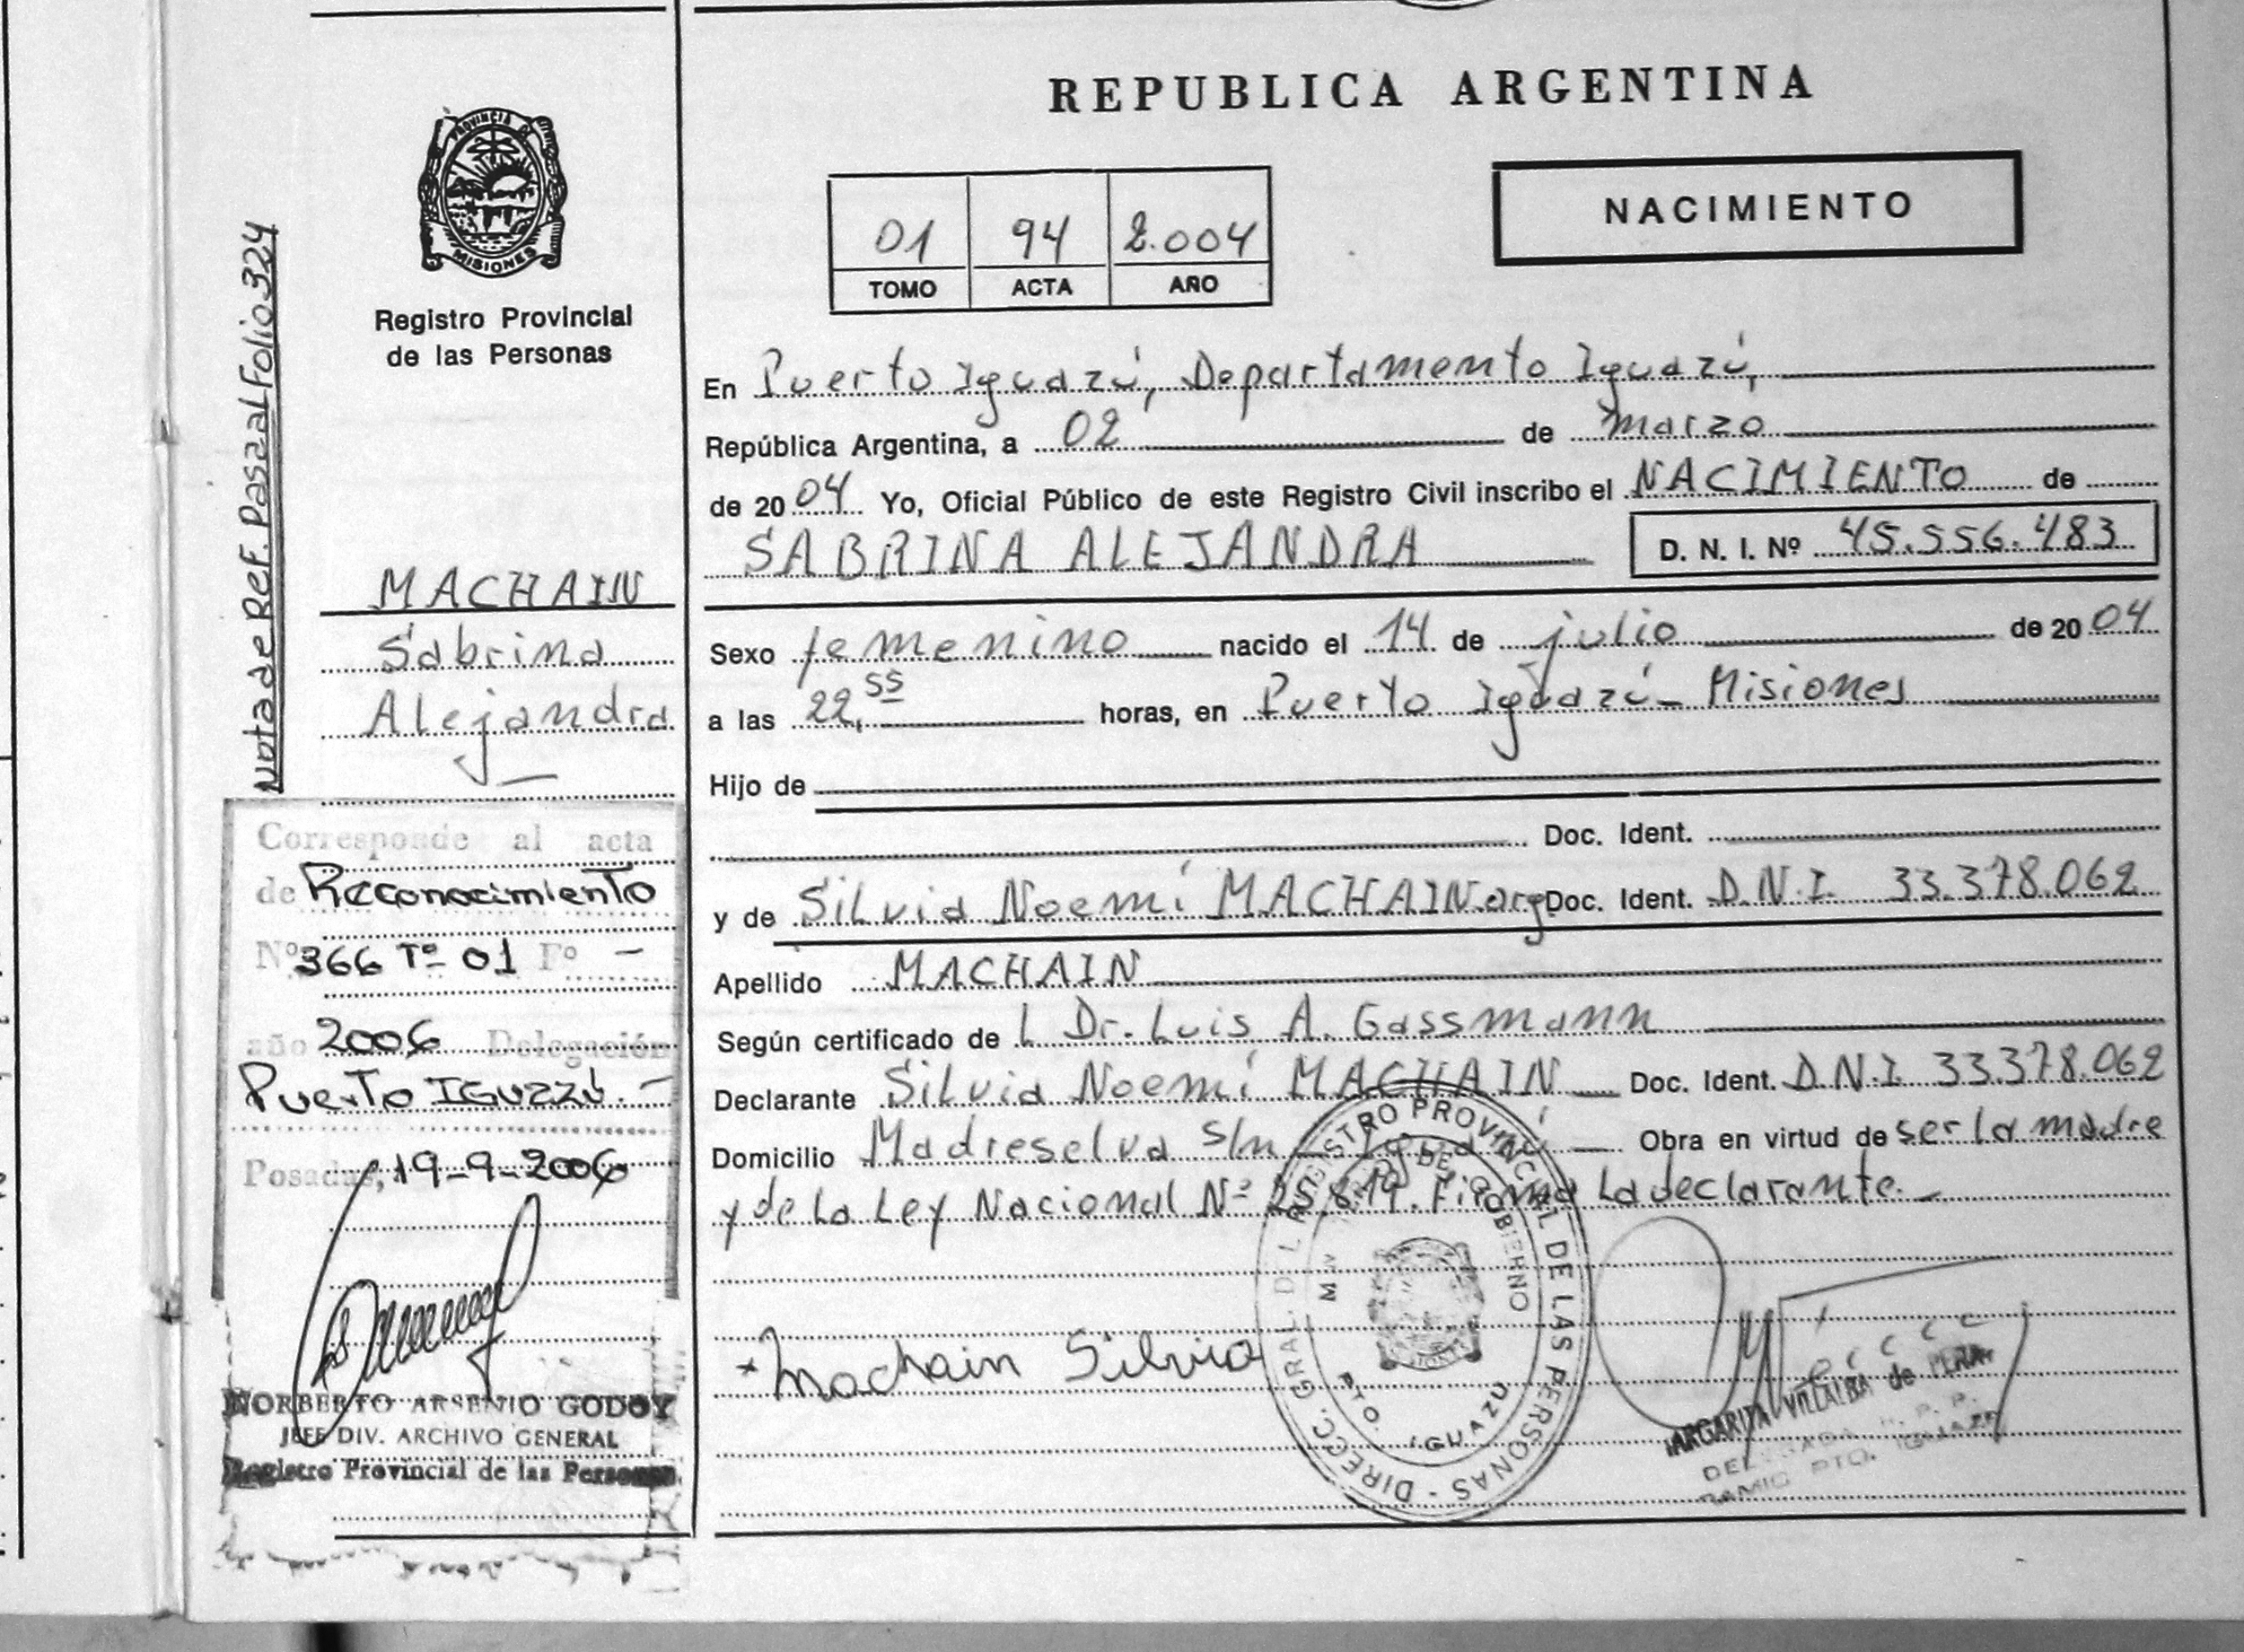 Nota de Ref. Pasa al Folio 324
PROVINCIA DE
MISIONES
Registro Provincial
de las Personas
MACHAIN
Sabrina
Alejandra
Corresponde al acta
de Reconocimiento
Nº 366 Tº 01 Fº -
año 2006 Delegación
Puerto IGuazú.-
Posadas, 19-9-2006
NORBERTO ARSENIO GODOY
JEFE DIV. ARCHIVO GENERAL
Registro Provincial de las Personas
REPUBLICA ARGENTINA
01 94 2.004
TOMO ACTA AÑO
NACIMIENTO
En Puerto Iguazú, Departamento Iguazú,
República Argentina, a 02 de marzo
de 2004 Yo, Oficial Público de este Registro Civil inscribo el NACIMIENTO de
SABRINA ALEJANDRA D. N. I. Nº 45.556.483
Sexo femenino nacido el 14 de julio de 2004
a las 22,55 horas, en Puerto Iguazú - Misiones
Hijo de
Doc. Ident.
y de Silvia Noemí MACHAIN arg Doc. Ident. D.N.I. 33.378.062
Apellido MACHAIN
Según certificado de L Dr. Luis A. Gassmann
Declarante Silvia Noemí MACHAIN Doc. Ident. D.N.I. 33.378.062
Domicilio Madreselva s/n Iguazú Obra en virtud de ser la madre
y de la Ley Nacional Nº 25.819. Firma la declarante.-
Machain Silvia
DIRECC. GRAL. DEL REGISTRO PROVINCIAL DE LAS PERSONAS -
DE GOBIERNO
PTO. IGUAZU
MARGARITA VILLALBA de
DELEGADA R. P. P.
PTO. IGUAZU